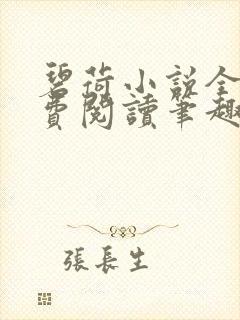 碧荷小説全
費閱讀筆趣
張長生